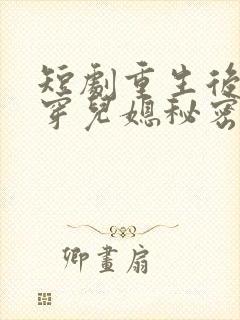 短劇重生後
穿兒媳秘密
卿畫扇